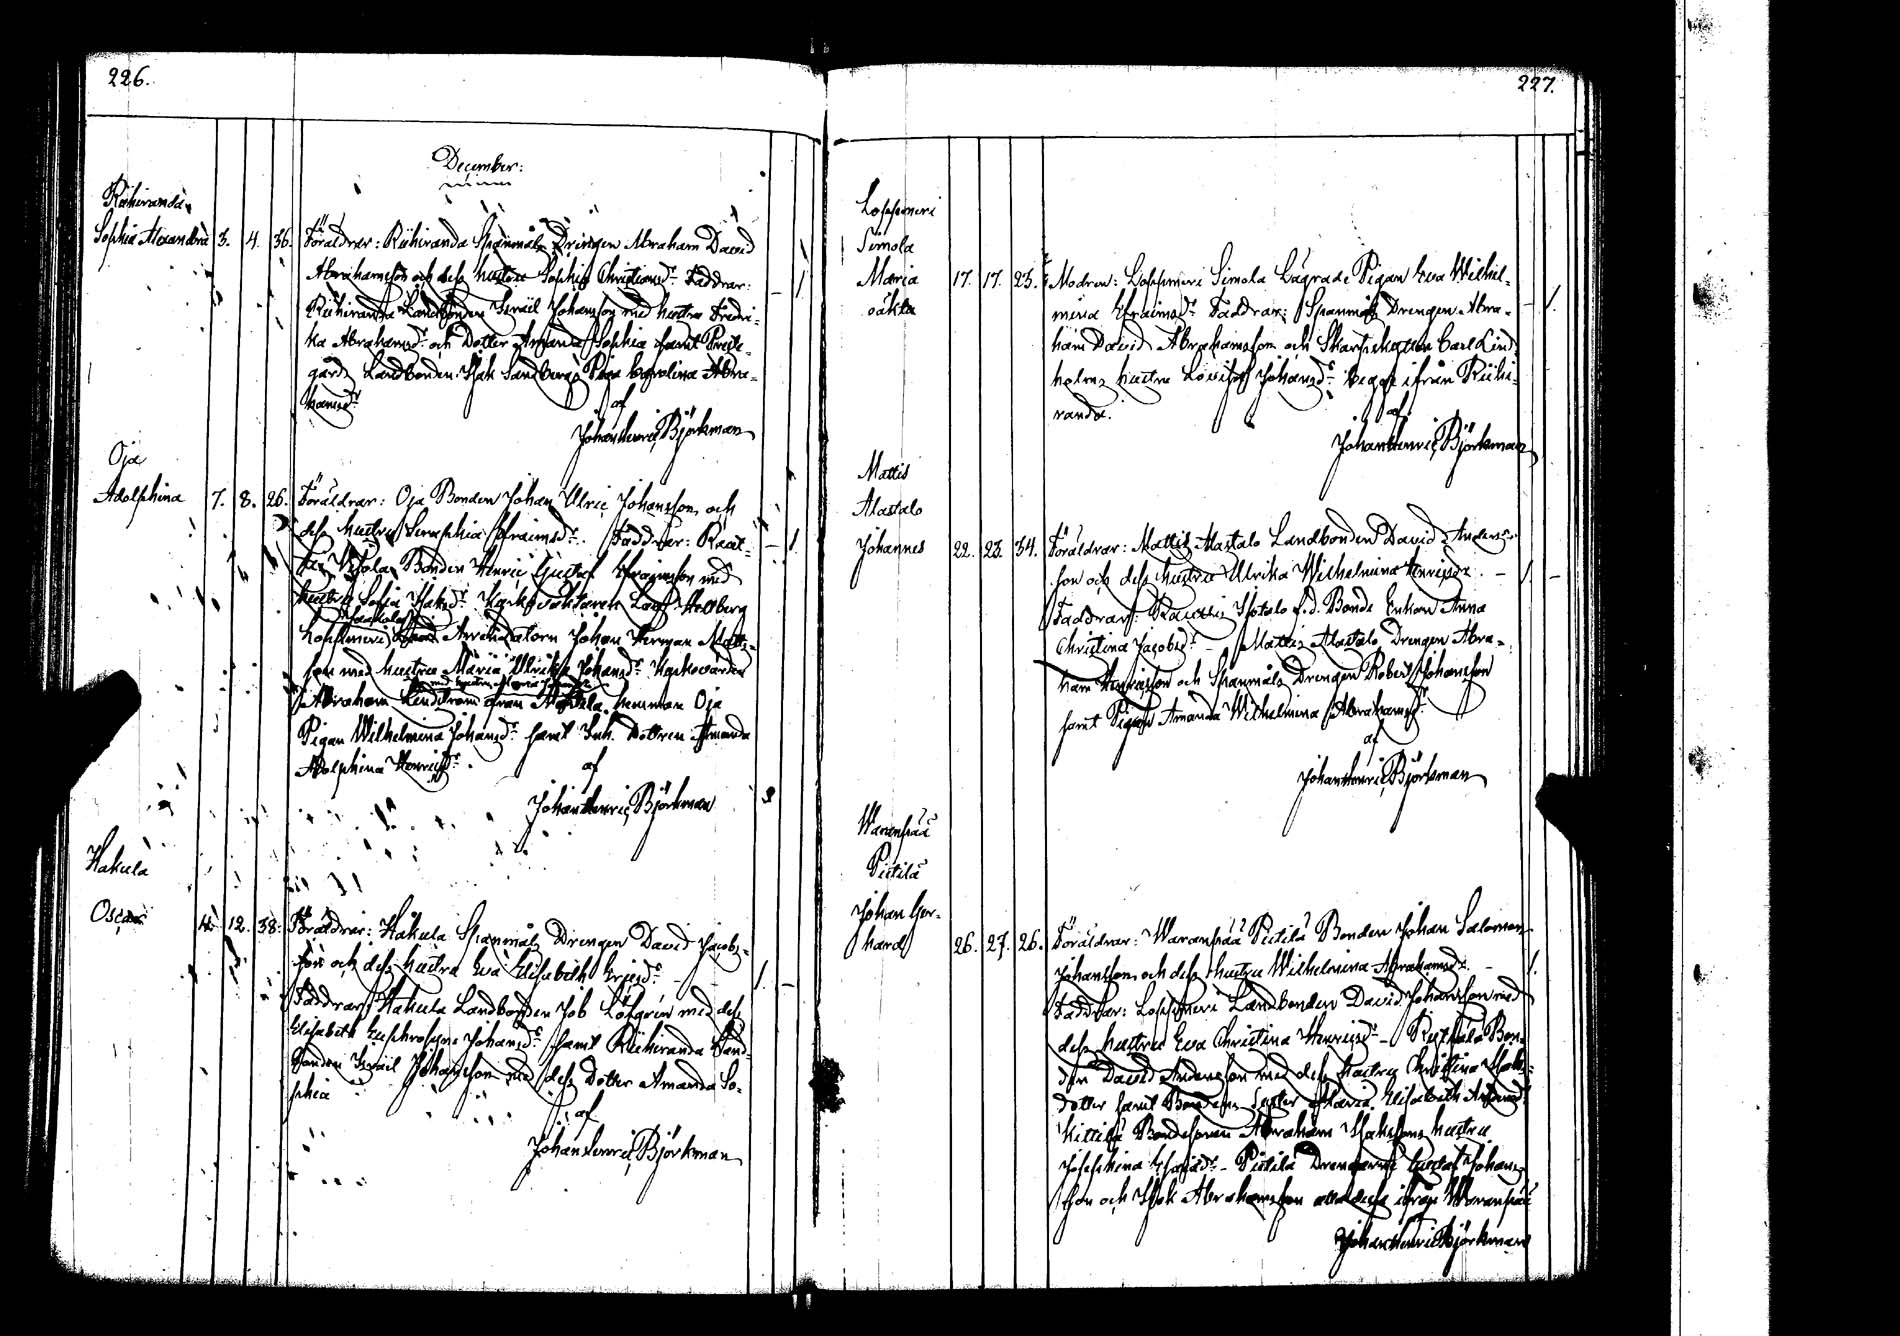 226.
December:
Riihiranda
Sophia Alexandra 3. 4. 36. Föräldrar: Riihiranda Spanmåls Drengen Abraham David
Abrahamsson och dess hustru Sophia Christiansdr. Faddrar:
Riihiranda Landbonden Israël Johansson med hustru Fredri-
ka Abrahamsdr. och Dotter Amanda Sophia samt
gårds Landbonden Isak Sandbergs Piga Carolina Abra-
hamsdr.
af
Johan Henric Björkman
Oja
Adolphina 7. 8. 26. Föräldrar: Oja Bonden Johan Ulric Johansson och
dess hustru Seraphia Efraimsdr. Faddrar:
Bonden Henric Gustaf Efraimsson med
hustru Sofia Isaksdr.
Loppmeri Arrendatorn Johan Herman Matts-
son med hustru Maria Ulrika Johansdr.
med hustru Maria
Abraham Lindström från hemman Oja
Pigan Wilhelmina Johansdr. samt Inh. Dottren Amanda
Adolphina Henricsdr.
af
Johan Henric Björkman
Hakula
Oscar 4. 12. 38. Föräldrar: Hakula Spanmåls Drengen David Jacobs-
son och dess hustru Eva Elisabeth Ericsdr.
Faddrar: Hakula Landbonden Job Löfgren med dess
Elisabeth Euphrosyne Johansdr. samt Riihiranda Land-
bonden Israël Johansson med dess Dotter Amanda So-
phia
af
Johan Henric Björkman
227.
Loppmeri
Simola
Maria 17. 17. 23. Modren: Loppmeri Simola Lägrade Pigan Eva Wilhel-
oäkta
mina Efraimsdr. Faddrar: Spanmåls Drengen Abra-
ham David Abrahamsson och Carl Lind-
holms hustru Lovisa Johansdr. begge ifrån Riihi-
randa.
af
Johan Henric Björkman
Mattis
Alastalo
Johannes 22. 23. 34. Föräldrar: Mattis Alastalo Landbonden David Anders-
son och dess hustru Ulrika Wilhelmina Henricsdr.
Faddrar: f.d. Bonde Enkan Anna
Christina Jacobsdr. - Mattis Alastalo Drengen Abra-
ham Henricsson och Spanmåls Drengen Robert Johansson
samt Pigan Amanda Wilhelmina Abrahamsdr.
af
Johan Henric Björkman
Waranpää
Pietilä
Johan Ger-
hard 26. 27. 26. Föräldrar: Waranpää Pietilä Bonden Johan Salomon
Johansson och dess hustru Wilhelmina Abrahamsdr. -
Faddrar: Loppmeri Landbonden David Johansson med
dess hustru Eva Christina Henricsdr. - Bon-
den David Andersson med dess hustru Christina Isaks-
dotter samt Bondens Syster Maria Elisabeth Andersdr.
Kittilä Bondesonen Abraham Isakssons hustru
Josephina Esaiasdr. - Pietilä Drengarne Gustaf Johans-
son och Isak Abrahamsson alla dess ifrån Waranpää
Johan Henric Björkman